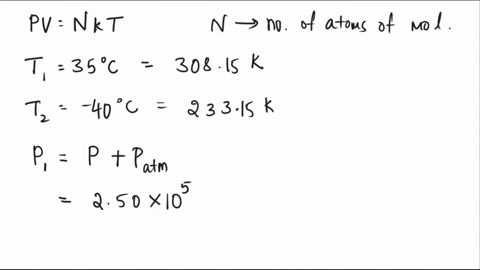 PV = NkT N → no. of atoms of mol.
T₁ = 35°C = 308.15 K
T₂ = -40°C = 233.15 K
P₁ = P + Patm
= 2.50 × 10⁵